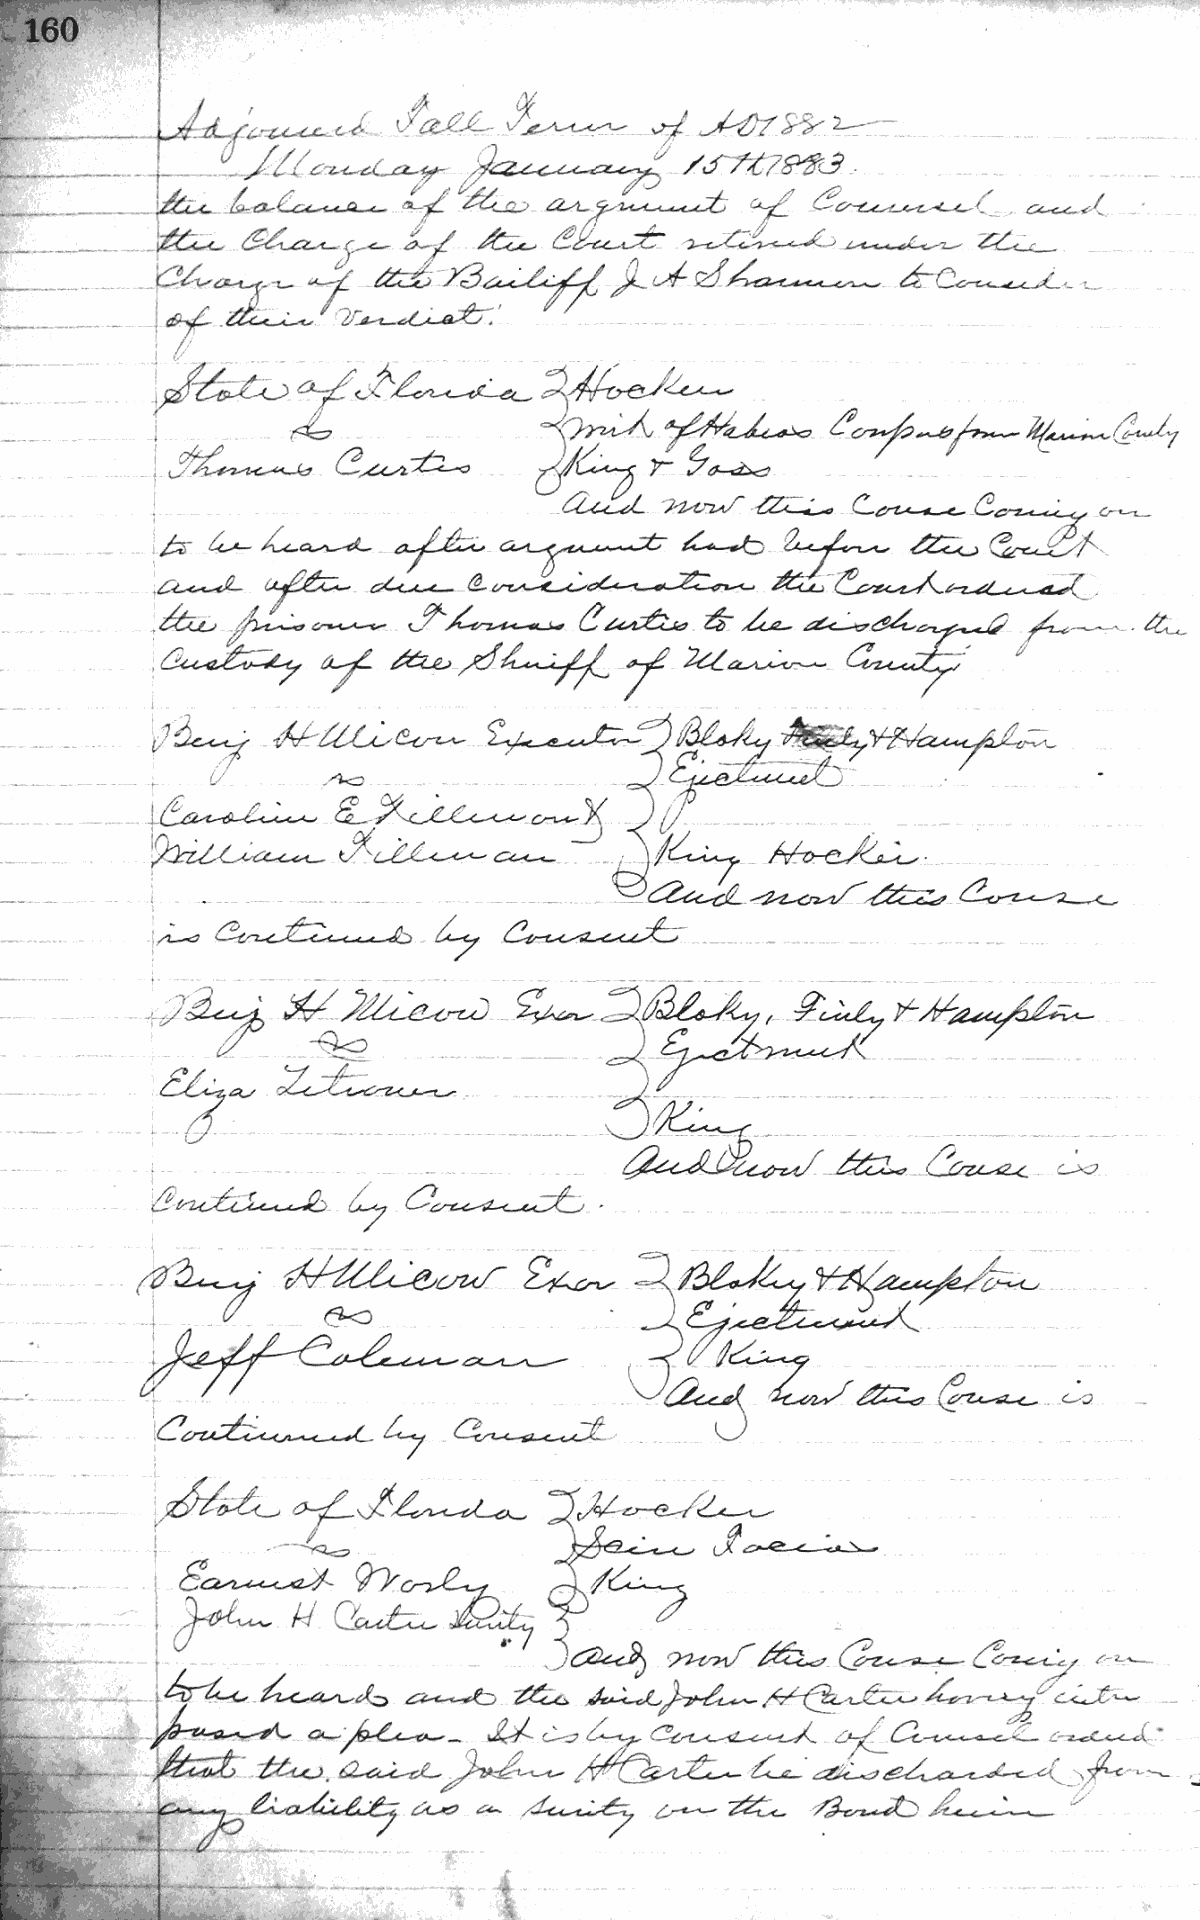 160
Adjourned Fall Term of AD 1882
Monday January 15th 1883.
the balance of the argument of Counsel and
the Charge of the Court retired under the
Charge of the Bailiff J A Shannon to Consider
of their Verdict.
State of Florida } Hocker
vs } writ of Habeas Corpus from Marion County
Thomas Curtis } King & Goss
And now this Couse Coming on
to be heard after argument had before the Court
and after due Consideration the Court ordered
the prisoner Thomas Curtis to be discharged from the
Custody of the Sheriff of Marion County
Benj H Micou Executor } Bloky Finly & Hampton
vs } Ejectment
Caroline E Tillman &
William Tillman } King Hocker.
And now this Couse
is Continued by Consent
Benj H Micou Exor } Bloky, Finly & Hampton
vs } Ejectment
Eliza
} King
And now this Couse is
Continued by Consent.
Benj H Micou Exor } Blokey & Hampton
vs } Ejectment
Jeff Coleman } King
And now this Couse is
Continued by Consent
State of Florida } Hocker
vs } Scire Facias
Earnest Worly } King
John H Carter Surity }
And now this Couse Coming on
to be heard and the said John H Carter having inter
posed a plea - It is by Consent of Counsel ordered
that the said John H Carter be discharded from
any liability as a surity on the Bond herein